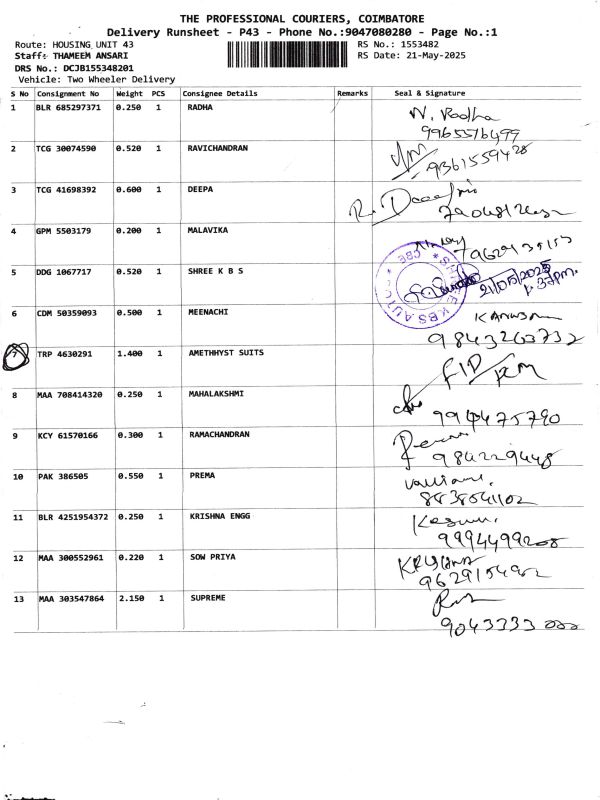 THE PROFESSIONAL COURIERS, COIMBATORE
Delivery Runsheet - P43 - Phone No.:9047080280 - Page No.:1
Route: HOUSING UNIT 43 RS No.: 1553482
Staff: THAMEEM ANSARI RS Date: 21-May-2025
DRS No.: DCJB155348201
Vehicle: Two Wheeler Delivery
S No Consignment No Weight PCS Consignee Details Remarks Seal & Signature
1 BLR 685297371 0.250 1 RADHA N. Radha
9965576499
2 TCG 30074590 0.520 1 RAVICHANDRAN 9361559428
3 TCG 41698392 0.600 1 DEEPA
4 GPM 5503179 0.200 1 MALAVIKA
5 DDG 1067717 0.520 1 SHREE K B S 21/05/2025
6 CDM 50359093 0.500 1 MEENACHI
9843263732
7 TRP 4630291 1.400 1 AMETHHYST SUITS
8 MAA 708414320 0.250 1 MAHALAKSHMI
9944475790
9 KCY 61570166 0.300 1 RAMACHANDRAN
9842229448
10 PAK 386505 0.550 1 PREMA
8838541102
11 BLR 4251954372 0.250 1 KRISHNA ENGG
9994499208
12 MAA 300552961 0.220 1 SOW PRIYA
9629154962
13 MAA 303547864 2.150 1 SUPREME
9043333000